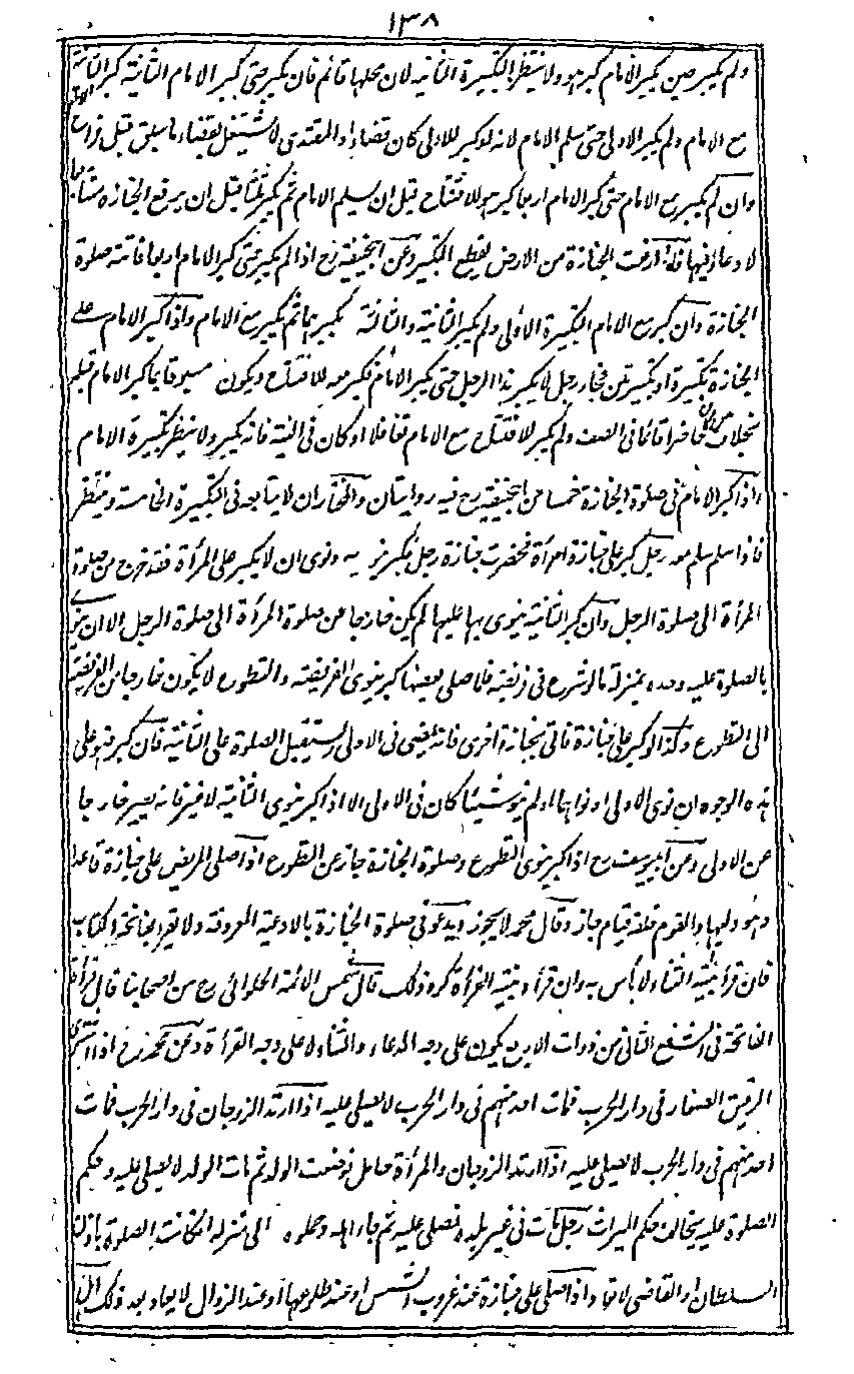 ١٣٨
ولم يكبر حين كبر الامام كبر هو ولا ينتظر التكبيرة الثانية لان محلها قائم فان لم يكبر حتى كبر الامام الثانية كبر الثانية
مع الامام ولم يكبر الاولى حتى سلم الامام لانه لو كبر للاولى كان قضاء والمقتدى لا يشتغل بقضاء ما سبق قبل فراغ
وان لم يكبر مع الامام حتى كبر الامام اربعا كبر هو للافتتاح قبل ان يسلم الامام ثم يكبر ثلثا قبل ان يرفع الجنازة متتابعا
لا دعاء فيها فاذا رفعت الجنازة من الارض يقطع التكبير وعن ابيحنيفة رح اذا لم يكبر حتى كبر الامام اربعا فاتته صلوة
الجنازة وان كبر مع الامام التكبيرة الاولى ولم يكبر الثانية والثالثة يكبرهما ثم يكبر مع الامام واذا كبر الامام على
الجنازة تكبيرة او تكبيرتين فجاء رجل لا يكبر هذا الرجل حتى يكبر الامام فيكبر معه للافتتاح ويكون مسبوقا بما كبر الامام قبله
بخلاف من كان حاضرا قائما في الصف ولم يكبر للافتتاح مع الامام تغافلا او كان في النية فانه يكبر ولا ينتظر تكبيرة الامام
اذا كبر الامام في صلوة الجنازة خمسا عن ابيحنيفة رح فيه روايتان والمختار ان لا يتابعه في التكبيرة الخامسة وينتظر
فاذا سلم سلم معه رجل كبر على جنازة امرأة فحضرت جنازة رجل فكبر ينويه ونوى ان لا يكبر على المرأة فقد خرج من صلوة
المرأة الى صلوة الرجل وان كبر الثانية ينوى بها عليهما لم يكن خارجا عن صلوة المرأة الى صلوة الرجل الا ان ينوى
بالصلوة عليه وحده بمنزلة ما لو شرع في فريضة فلما صلى بعضها كبر ينوى الفريضة والتطوع لا يكون خارجا من الفريضة
الى التطوع وكذا لو كبر على جنازة فاتى بجنازة اخرى فانه يمضى في الاولى ويستقبل الصلوة على الثانية فان كبر فهو على
هذه الوجوه ان نوى الاولى او نواهما او لم ينو شيئا كان في الاولى الا اذا كبر ينوى الثانية لا غير فانه يصير خارجا
عن الاولى وعن ابيوسف رح اذا كبر ينوى التطوع وصلوة الجنازة جاز عن التطوع اذا صلى المريض على جنازة قاعدا
وهو وليها والقوم خلفه قيام جاز وقال محمد لا يجوز ويدعو في صلوة الجنازة بالادعية المعروفة ولا يقرأ بفاتحة الكتاب
فان قرأ بنية الثناء ولا بأس به وان قرأ بنية القرأة كره ذلك قال شمس الائمة الحلوائى رح من اصحابنا قال قرأة
الفاتحة في الشفع الثانى من ذوات الاربع يكون على وجه الدعاء والثناء لا على وجه القرأة وعن محمد رح اذا اشترى
الرقيق الصغار في دار الحرب فمات احد منهم في دار الحرب لا يصلى عليه اذا ارتد الزوجان في دار الحرب فمات
احد منهم في دار الحرب لا يصلى عليه اذا ارتد الزوجان والمرأة حامل فوضعت الولد ثم مات الولد لا يصلى عليه وحكم
الصلوة عليه يخالف حكم الميراث رجل مات في غير بلده فصلى عليه ثم جاء اهله وحملوه الى منزله ان كانت الصلوة باذن
السلطان او القاضى لا تعاد واذا صلى على جنازة عند غروب الشمس او عند طلوعها او عند الزوال لا يعاد بعد ذلك